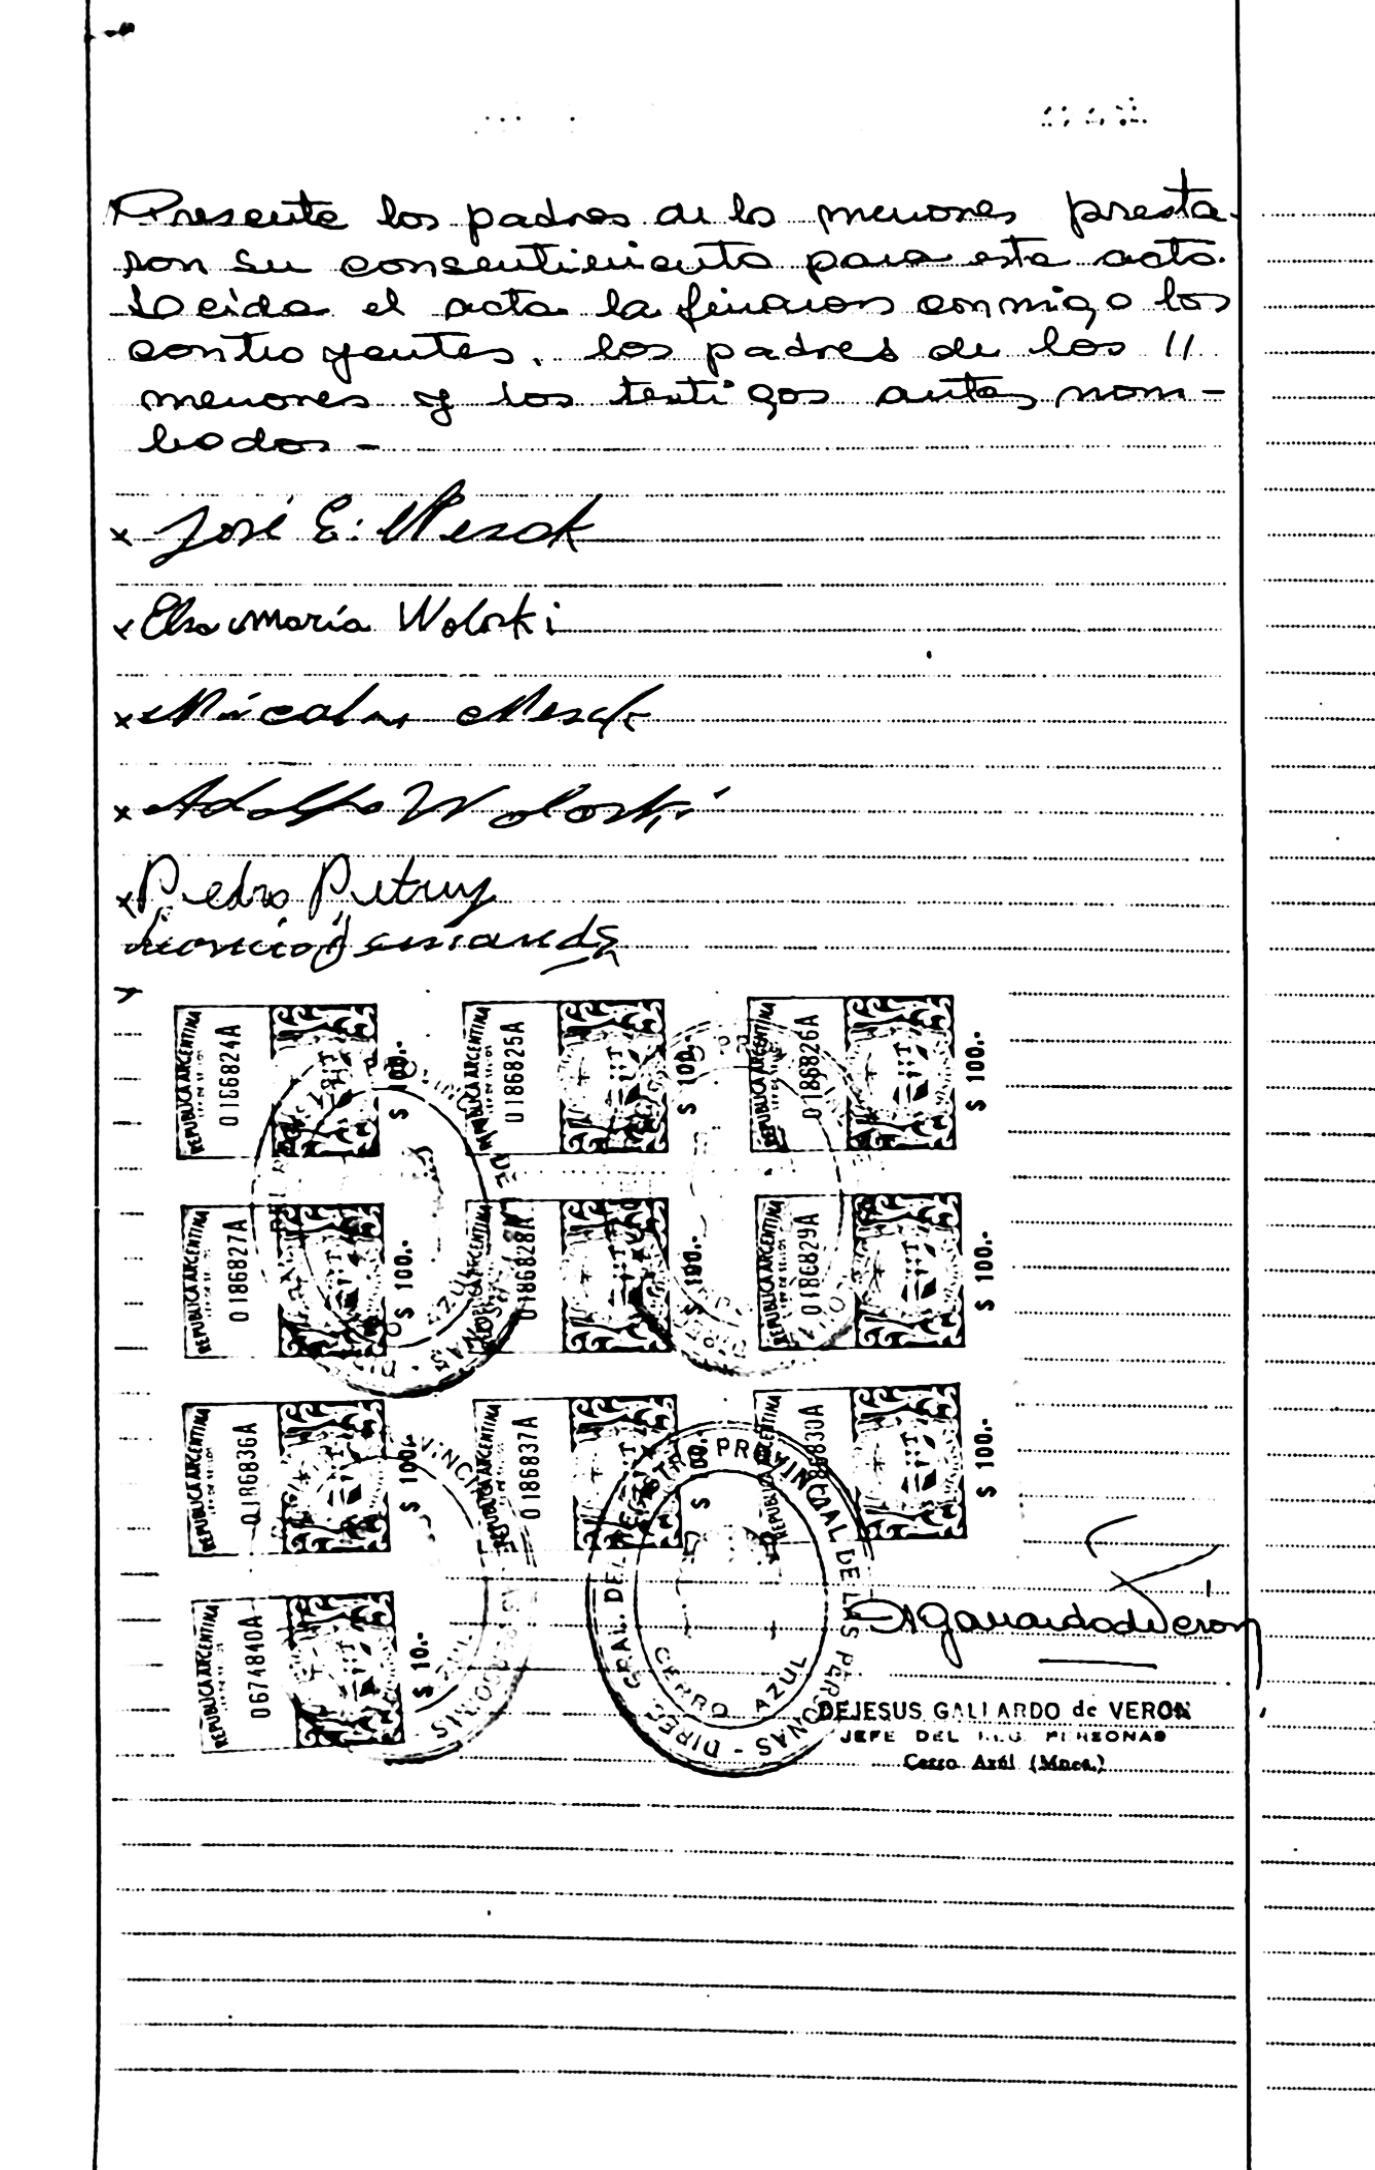 Presente los padres de lo menores presta-
ron su consentimiento para este acto.
Leida el acta la firman conmigo los
contrayentes. los padres de los //
menores y los testigos antes nom-
brados-
x José E.
x Elsa María Woloski
x Nicolas
x Adolfo Woloski
x Pedro Petruy
REPUBLICA ARGENTINA
0186824A
$ 100.-
REPUBLICA ARGENTINA
0186825A
$ 100.-
REPUBLICA ARGENTINA
0186826A
$ 100.-
REPUBLICA ARGENTINA
0186827A
$ 100.-
REPUBLICA ARGENTINA
0186828A
$ 100.-
REPUBLICA ARGENTINA
0186829A
$ 100.-
REPUBLICA ARGENTINA
0186836A
$ 100.-
REPUBLICA ARGENTINA
0186837A
$ 100.-
REPUBLICA ARGENTINA
0186830A
$ 100.-
REPUBLICA ARGENTINA
0674840A
$ 10.-
PROVINCIAL DE LAS PERSONAS - DIREC. GRAL. DEL
CERRO AZUL
DEJESUS GALLARDO de VERON
JEFE DEL PERSONAS
Cerro Azúl (Mnes.)